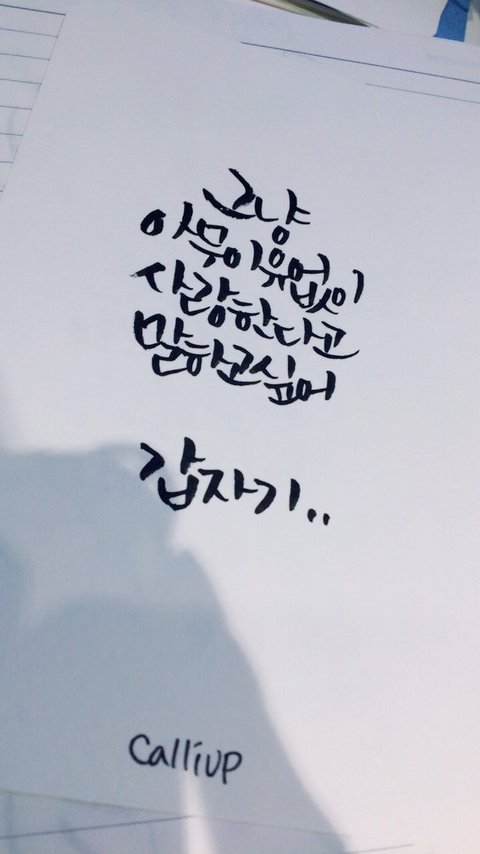 그냥
아무이유없이
사랑한다고
말하고싶어
갑자기..
Calliup